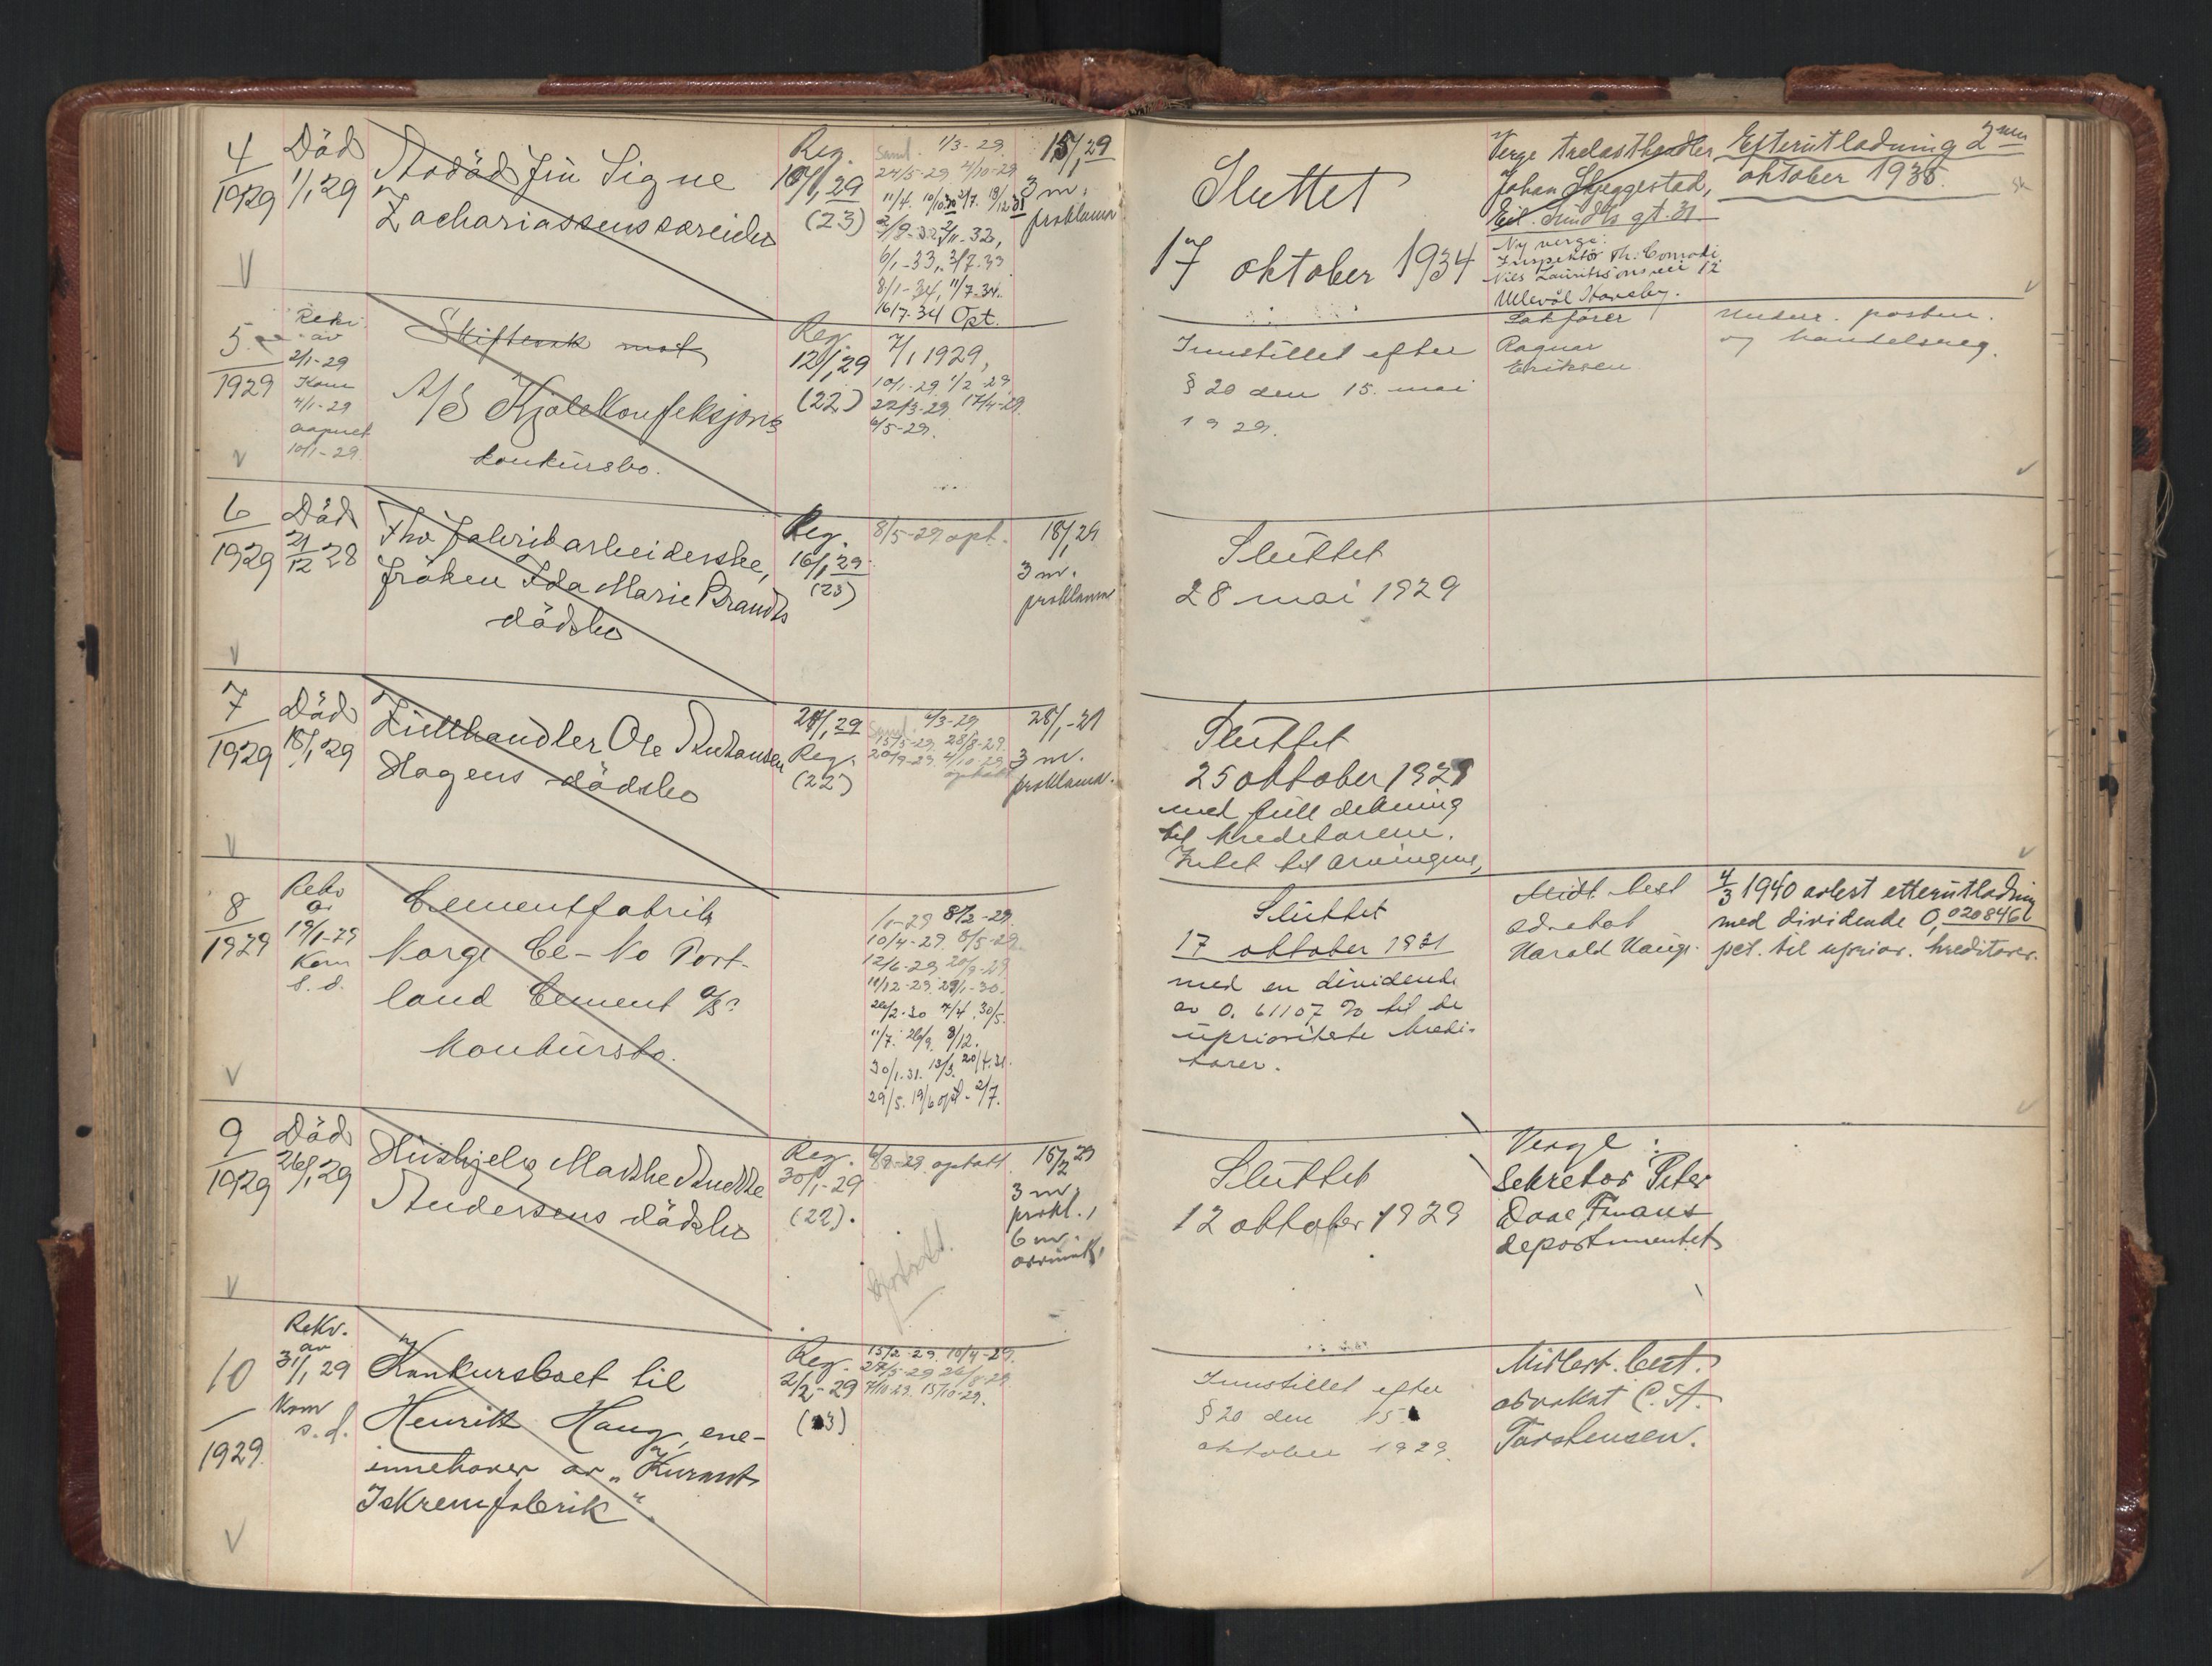 4
1929
Död
1/1 29
frü Signe
Zachariassens særeiebo
Reg.
10/1 29
(23)
Saml. 1/3-29.
24/5-29 4/10-29
6/1-33, 3/7-33
8/1-34, 11/7-34.
16/7-34 Opt.
15/1 29
3 m.
proklama
Sluttet
17 oktober 1934
Verge trelasthandler
Johan Skjeggestad,
Eil. Sundts gt. 31
Ny verge:
Inspektör Th. Conradi
Nils Lauritssönsvei 12
Ullevål Haveby.
Efterutlodning 2nen
oktober 1935.
5
1929
Rekv.
av
2/1-29
Kom
4/1-29
aapnet
10/1-29
Skiftesak mot
A/S Kjolekonfeksjons
konkursbo.
Reg.
12/1 29
(22)
7/1 1929,
10/1-29 1/2-29
22/3-29 17/4-29.
6/5-29.
Innstillet efter
§ 20 den 15. mai
1929.
Sakförer
Ragnar
Eriksen
Underr. posten.
og handelsreg.
6
1929
Död
21/12 28
Fhv fabrikarbeiderske,
fröken Ida Marie Brandts
dödsbo
Reg.
16/1 29.
(23)
8/5-29 opt.
18/1 29
3 m.
proklama
Sluttet
28 mai 1929
7
1929
Död
18/1 29
Ole Johansen
Hagens dödsbo
24/1 29
Reg.
(22)
Saml. 4/3-29
15/5-29. 28/8-29.
20/9-29. 4/10-29
optatt
28/1-29
3 m.
proklama.
Sluttet
25 oktober 1929
med full dekning
til kreditorene.
Intet til arvingene,
8
1929
Rekv
av
19/1-29
Kom
s. d.
Cementfabrik
Norge Ce-No Port-
land Cement A/S:
konkursbo.
1/2-29 8/2-29.
10/4-29. 8/5-29.
12/6-29 20/9-29
11/12-29. 29/1-30.
26/2-30 7/4. 30/5.
11/7. 26/9. 8/12.
30/1.31. 13/3. 20/4.31.
29/5. 19/6 opt. 2/7.
Sluttet
17 oktober 1931
med en dividende
av 0.61107 % til de
uprioriterte kredi-
torer.
Midl. best
advokat
Harald Hauge.
4/3 1940 avlest etterutlodning
med dividende 0,020846
pct. til uprior. kreditorer.
9
1929
Död
26/1 29
Hushjelp Marthe
Andersens dödsbo
Reg.
30/1-29
(22).
6/9-29. optatt.
15/2 29
3 m.
prokl.,
6 m.
Sluttet
12 oktober 1929
Verge:
Sekretær Peter
Daae, Finans
departementet
10
1929.
Rekv.
av
31/1 29
Kom
s. d.
Konkursboet til
Henrik Haug, ene-
innehaver av "Kurants
Iskremfabrik".
Reg.
2/2-29
(23)
15/2-29. 10/4-29.
27/5-29 26/8-29
7/10-29. 15/10-29.
Innstillet efter
§ 20 den 15.
oktober 1929.
Midlert. best.
advokat C. A.
Torstensen.